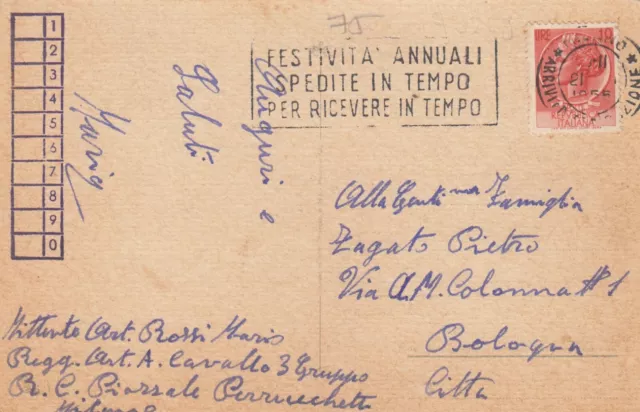 75
1
2
3
4
5
6
7
8
9
0
FESTIVITA' ANNUALI
SPEDITE IN TEMPO
PER RICEVERE IN TEMPO
LIRE 10
ITALIANA
Auguri e
Saluti
Mario
Alla Gent.ma Famiglia
Zagato Pietro
Via A.M. Colonna #1
Bologna
Città
Mittente Art. Rossi Mario
Regg. Art. A. Cavallo 3 Gruppo
R.C. Piazzale Perrucchetti